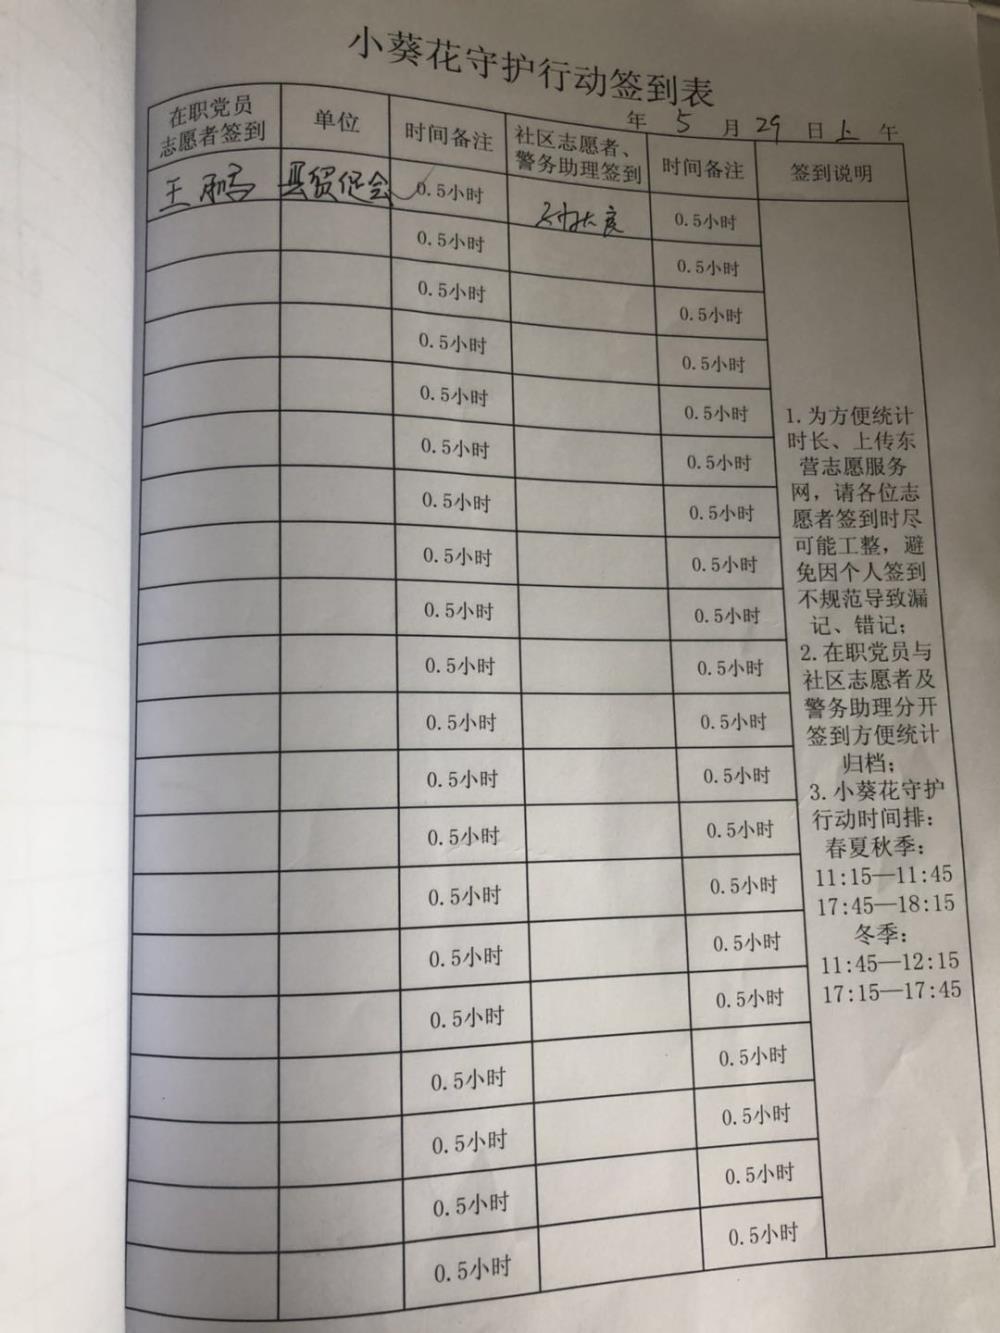 小葵花守护行动签到表
年 5 月 29 日 上 午
在职党员
志愿者签到
单位
时间备注
社区志愿者、
警务助理签到
时间备注
签到说明
王 县贸促会 0.5小时 0.5小时
0.5小时 0.5小时
0.5小时 0.5小时
0.5小时 0.5小时
0.5小时 0.5小时
0.5小时 0.5小时
0.5小时 0.5小时
0.5小时 0.5小时
0.5小时 0.5小时
0.5小时 0.5小时
0.5小时 0.5小时
0.5小时 0.5小时
0.5小时 0.5小时
0.5小时 0.5小时
0.5小时 0.5小时
0.5小时 0.5小时
0.5小时 0.5小时
0.5小时 0.5小时
0.5小时 0.5小时
0.5小时 0.5小时
1.为方便统计
时长、上传东
营志愿服务
网，请各位志
愿者签到时尽
可能工整，避
免因个人签到
不规范导致漏
记、错记；
2.在职党员与
社区志愿者及
警务助理分开
签到方便统计
归档；
3.小葵花守护
行动时间排：
春夏秋季：
11:15—11:45
17:45—18:15
冬季：
11:45—12:15
17:15—17:45